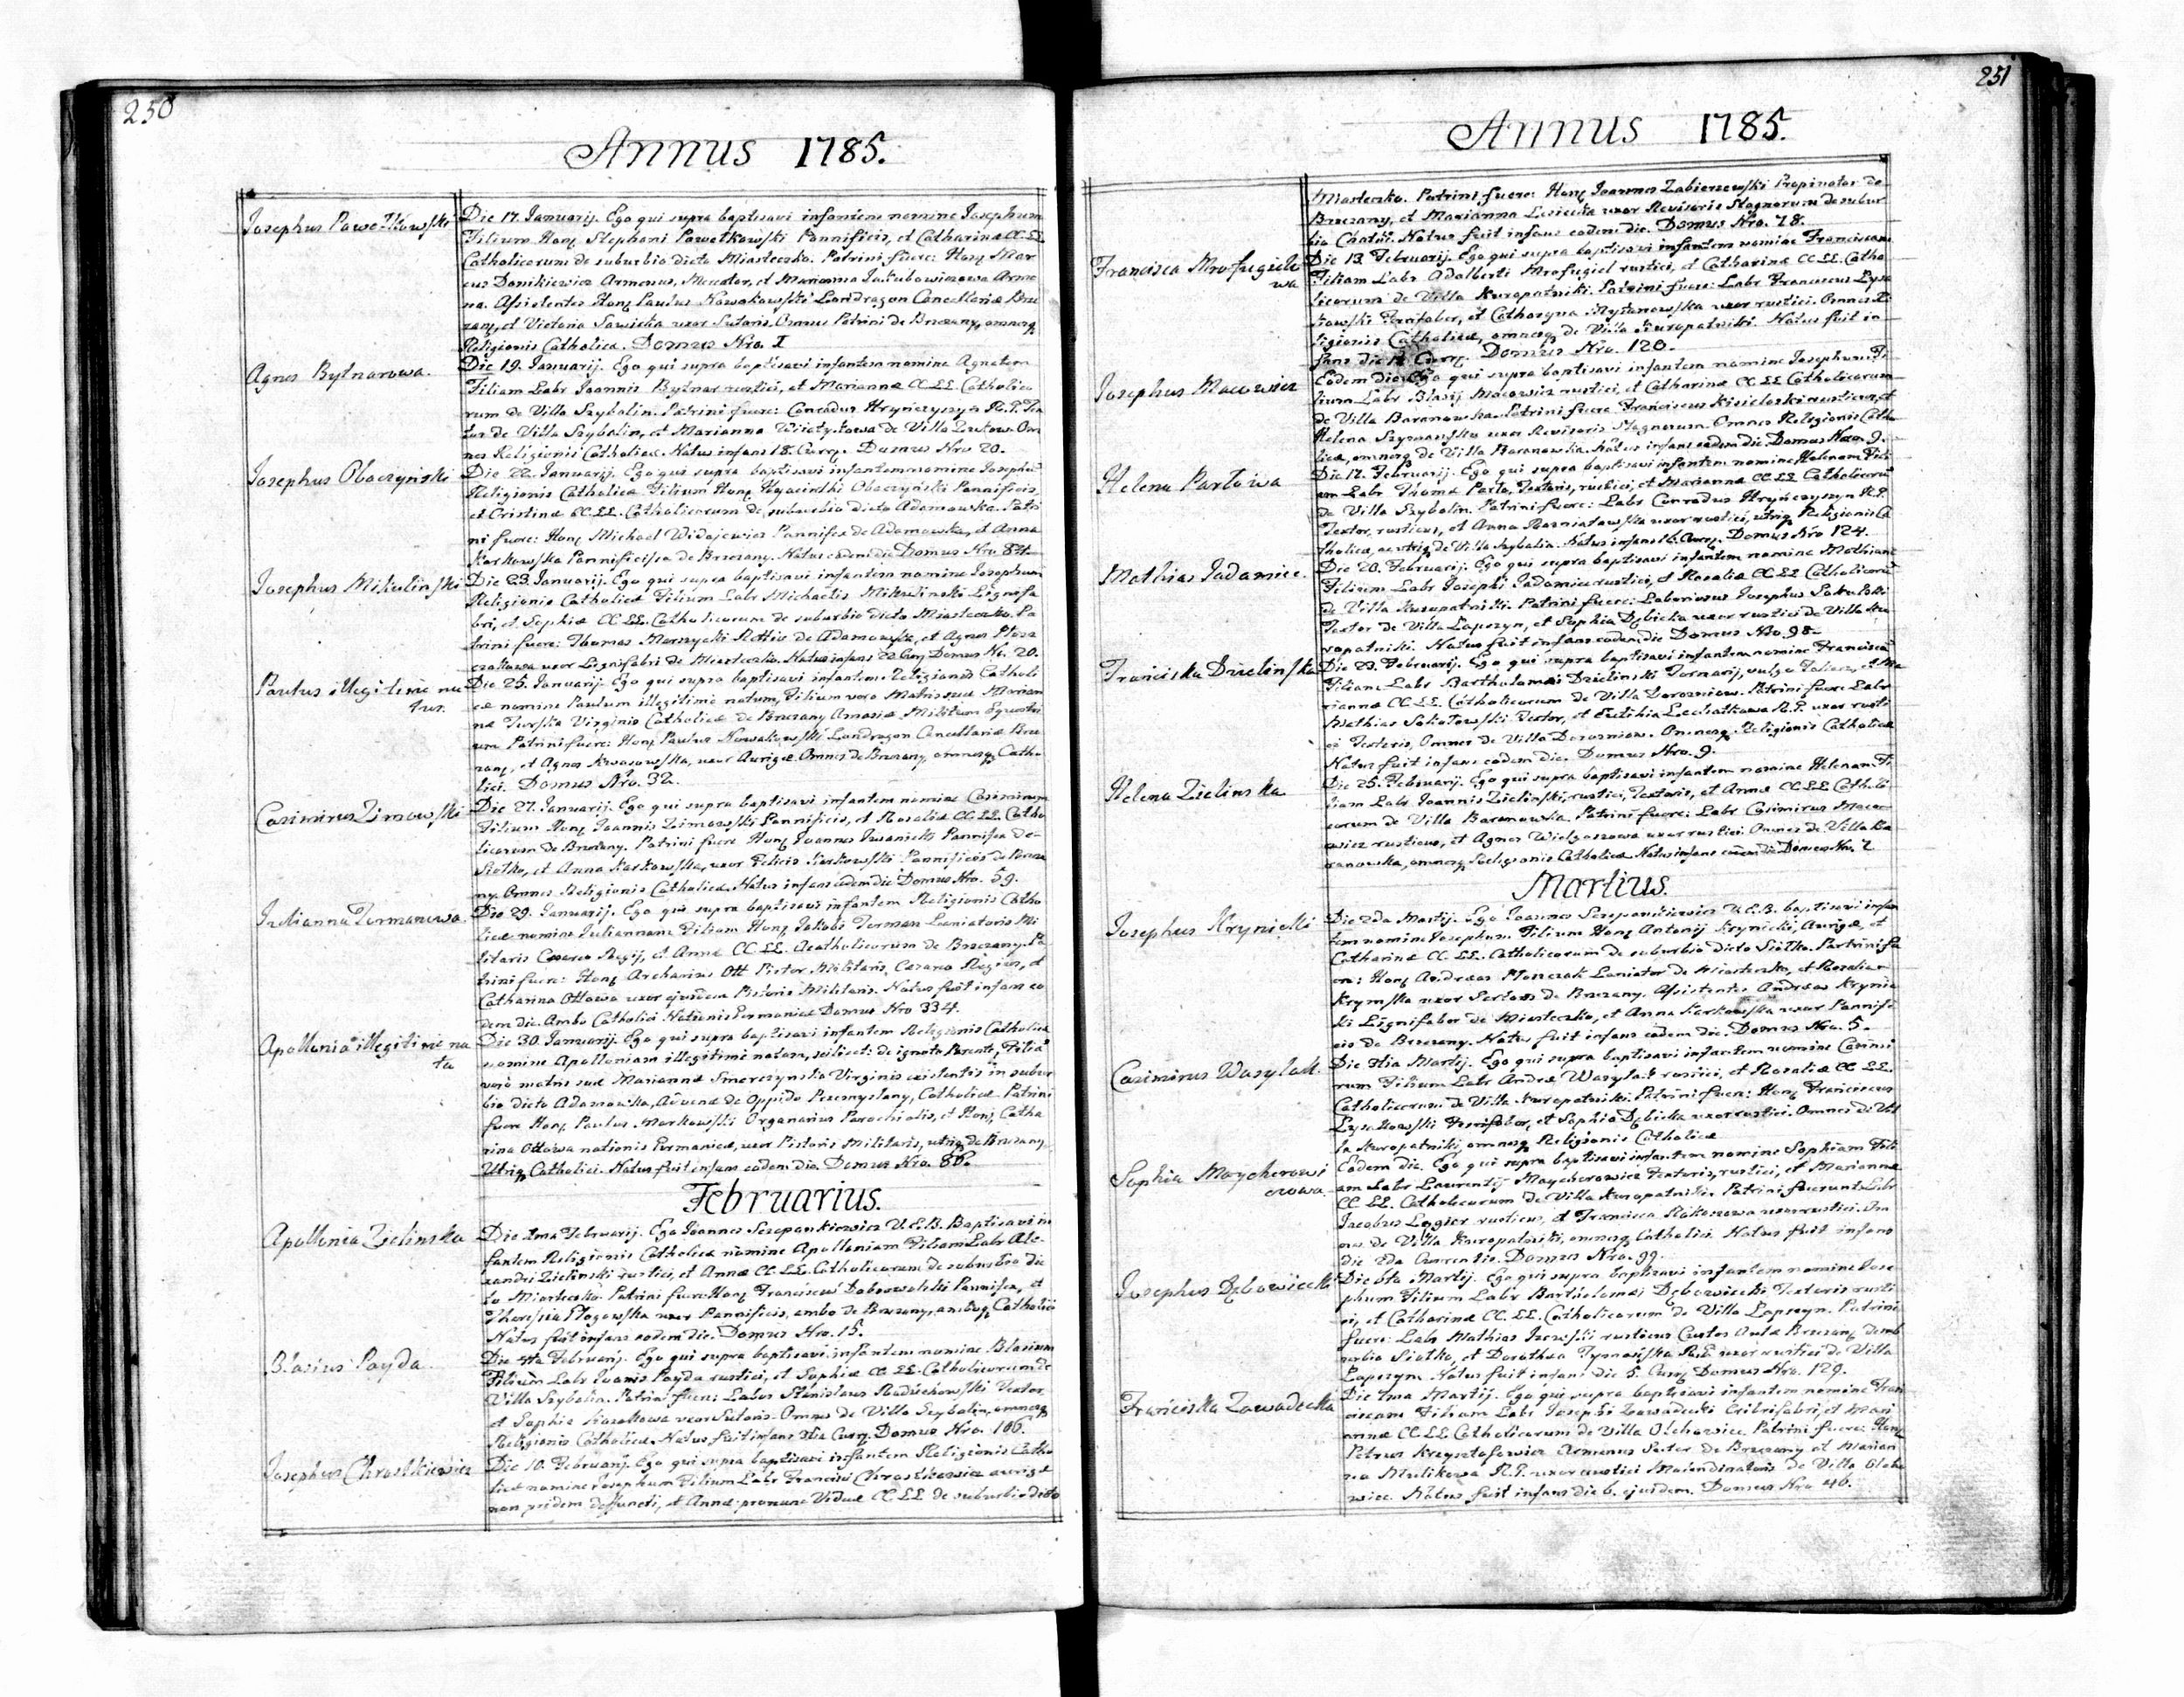 250
Annus 1785.
Josephus Pawełkowski
Die 17. Januarij. Ego qui supra baptisavi infantem nomine Josephum
Filium Honq Stephani Pawełkowski Pannificis, et Catharinæ CC.LL.
Catholicorum de suburbio dicto Miasteczko. Patrini fuere: Honq Mar
cus Donikiewicz Armenus, Mercator, et Marianna Jakubowiczowa Arme
na. Assistentes Honq Paulus Nowakowski Landragon Cancellariæ Brze
zanq, et Victoria Sawicka uxor Sutoris. Omnes Patrini de Brzezany, omnesq
Religionis Catholicæ. Domus Nro. 1
Agnes Bytnarowa.
Die 19. Januarij. Ego qui supra baptisavi infantem nomine Agnetem
Filiam Labr Joannis Bytnar rustici, et Mariannæ CC.LL. Catholico
rum de Villa Szybalin. Patrini fuere: Conradus Hryńczyszyn R.G. Tex
tor de Villa Szybalin, et Marianna de Villa Zukow. Om
nes Religionis Catholicæ. Natus infans 18. Curq. Domus Nro 20.
Josephus Obaczynski
Die 22. Januarij. Ego qui supra baptisavi infantem nomine Josephū
Religionis Catholicæ Filium Honq Hyacinthi Obaczynski Pannificis
et Cristinæ CC.LL. Catholicorum de suburbio dicto Adamowka. Patri
ni fuere: Honq Michael Widajewicz Pannifex de Adamowka, et Anna
Karkowska Pannificissa de Brzezany. Natus eadem die Domus Nro 84
Josephus Mikulinski
Die 23. Januarij. Ego qui supra baptisavi infantem nomine Josephum
Religionis Catholicæ Filium Labr Michaelis Mikulinski Lignifa
bri, et Sophiæ CC.LL. Catholicorum de suburbio dicto Miasteczko. Pa
trini fuere: Thomas Marszycki de Adamowka, et Agnes
uxor Lignifabri de Miasteczko. Natus infans 22 Curq Domus No. 20.
Paulus illegitime na
tus.
Die 25. Januarij. Ego qui supra baptisavi infantem Religionis Catholi
cæ nomine Paulum illegitime natum, Filium vero Matris suæ Marian
næ Turska Virginis Catholicæ de Brzezany Amasiæ Militum Equestri
um Patrini fuere: Honq Paulus Nowakowski Landragon Cancellariæ Brze
zanq, et Agnes Kwasowska, uxor Aurigæ. Omnes de Brzezany omnesq Catho
lici. Domus Nro. 32.
Casimirus Zimowski
Die 27. Januarij. Ego qui supra baptisavi infantem nomine Casimirum
Filium Honq Joannis Zimowski Pannificis, et Rosaliæ CC.LL. Catho
licorum de Brzezany. Patrini fuere Honq Joannes Iwanicki Pannifex de
Siołko, et Anna Karkowska, uxor Felicis Karkowski Pannificis de Brzeza
ny. Omnes Religionis Catholicæ. Natus infans eadem die Domus Nro. 59.
Julianna Termanowa.
Die 29. Januarij. Ego qui supra baptisavi infantem Religionis Catho
licæ nomine Juliannam Filiam Honq Jakobi Terman Laniatoris Mi
litaris Cæsareo Regij, et Annæ CC.LL. Acatholicorum de Brzezany. Pa
trini fuere: Honq Archarius Ott Pistor Militaris Cæsareo Regius, et
Catharina Ottowa uxor ejusdem Pistoris Militaris. Natus fuit infans ea
dem die. Ambo Catholici Nationis Germanicæ Domus Nro 334.
Apollonia illegitime na
ta
Die 30. Januarij. Ego qui supra baptisavi infantem Religionis Catholicæ
nomine Apolloniam illegitime natam, scilicet: de ignoto Parente, Filiā
vero matris suæ Mariannæ Smerczynska Virginis existentis in subur
bio dicto Adamowka, Advenæ de Oppido Przemyslany, Catholicæ. Patrini
fuere Honq Paulus Markowski Organarius Parochialis, et Honq Catha
rina Ottowa nationis Germanicæ, uxor Pistoris Militaris, utriq de Brzezany,
Utriq Catholici. Natus fuit infans eadem die. Domus Nro. 86.
Februarius.
Apollonia Zielinska
Die 1ma Februarij. Ego Joannes Szczepankiewicz V.E.B. Baptisavi in
fantem Religionis Catholicæ nomine Apolloniam Filiam Labr Ale
xandri Zielinski rustici, et Annæ CC.LL. Catholicorum de suburbio dic
to Miasteczko. Patrini fuere Honq Franciscus Dobrowolski Pannifex, et
Theresia Głogowska uxor Pannificis, ambo de Brzezany, amboq Catholici
Natus fuit infans eodem die. Domus Nro. 15.
Blasius Payda.
Die 4ta Februarij. Ego qui supra baptisavi infantem nomine Blasium
Filium Labr Joanis Payda rustici, et Sophiæ CC.LL. Catholicorum de
Villa Szybalin. Patrini fuere: Labor Stanislaus Raduchowski Textor
et Sophia uxor Sutoris. Omnes de Villa Szybalin, omnesq
Religionis Catholicæ. Natus fuit infans 3tia Curq. Domus Nro. 106.
Josephus Chrostkiewicz
Die 10. Februarij. Ego qui supra baptisavi infantem Religionis Catho
licæ nomine Josephum Filium Labr Francisci Chrostkiewicz aurigæ
non pridem defuncti, et Annæ pronunc Viduæ CC.LL de suburbio dicto
251
Annus 1785.
Miasteczko. Patrini fuere: Honq Joannes Zabierzewski Propinator de
Brzezany, et Marianna Lesiecka uxor Revisoris Stagnorum de subur
bio Chatki. Natus fuit infans eadem die. Domus Nro. 78.
Francisca Mrofugielo
wa
Die 13. Februarij. Ego qui supra baptisavi infantem nomine Franciscam
Filiam Labr Adalberti Mrofugiel rustici, et Catharinæ CC.LL. Catho
licorum de Villa Kuropatniki. Patrini fuere: Labr Franciscus Lysa
kowski Ferrifaber, et Catharyna Mystanowska uxor rustici. Omnes Re
ligionis Catholicæ, omnesq de Villa Kuropatniki. Natus fuit in
fans die Curq. Domus Nro. 120.
Josephus Macowicz
Eodem die Ego qui supra baptisavi infantem nomine Josephum Fi
lium Labr Blasij Macowicz rustici, et Catharinæ CC.LL Catholicorum
de Villa Baranowka. Patrini fuere Franciscus Kisieloski rusticus, et
Helena Szymanska uxor Revisoris Stagnorum. Omnes Religionis Catho
licæ, omnesq de Villa Baranowka. Natus infans eadem die Domus Nro. 9.
Helena Partowa
Die 17. Februarij. Ego qui supra baptisavi infantem nomine Helenam Fili
am Labr Thomæ Parto, Textoris, rustici, et Mariannæ CC.LL Catholicorū
de Villa Szybalin. Patrini fuere: Labr Conradus Hryńczyszyn R.G.
Textor, rusticus, et Anna uxor rustici, utriq Religionis Ca
tholicæ, ac utriq de Villa Szybalin. Natus infans 16. Curq. Domus Nro 124.
Mathias Jadamiec.
Die 20. Februarij. Ego qui supra baptisavi infantem nomine Mathiam
Filium Labr Josephi Jadamiec rustici, et Rosaliæ CC.LL Catholicorū
de Villa Kuropatniki. Patrini fuere: Laboriosus Josephus Sokulski
Textor de Villa Lapszyn, et Sophia Dębicka uxor rustici de Villa Ku
ropatniki. Natus fuit infans eadem die Domus Nro. 98.
Franciska Dzielinska
Die 23. Februarij. Ego qui supra baptisavi infantem nomine Franciscā
Filiam Labr Bartholomæi Dzielinski Tornarij, vulgo Tokarz, et Ma
riannæ CC.LL. Catholicorum de Villa Dorozniow. Patrini fuere Labr
Mathias Sokołowski Textor, et Eutihia Lechatkowa R.G. uxor rusti
ci Textoris, Omnes de Villa Doroszniow. Omnesq Religionis Catholicæ
Natus fuit infans eadem die. Domus Nro. 9.
Helena Zielinska
Die 25. Februarij. Ego qui supra baptisavi infantem nomine Helenam Fi
liam Labr Joannis Zielinski, rustici, Textoris, et Annæ CC.LL Catholi
corum de Villa Baranowka. Patrini fuere: Labr Casimirus Maco
wicz rusticus, et Agnes Wielgoszowa uxor rustici. Omnes de Villa Ba
ranowka, omnesq Religionis Catholicæ Natus infans eadem die Domus Nro. 2
Martius.
Josephus Krynicki
Die 2da Martij. Ego Joannes Szczepankiewicz V.E.B. baptisavi infan
tem nomine Josephum Filium Honq Antonij Krynicki, Aurigæ, et
Catharinæ CC.LL. Catholicorum de suburbio dicto Siołko. Patrini fu
ere: Honq Andreas Płonczak Laniator de Miasteczko, et Rosalia
Krymska uxor Sartoris de Brzezany. Assistentes Andreas Krynic
ki Lignifaber de Miasteczko, et Anna Karkowska uxor Pannifi
cis de Brzezany. Natus fuit infans eadem die. Domus Nro. 5.
Casimirus Wasylak.
Die 3tia Martij. Ego qui supra baptisavi infantem nomine Casimi
rum Filium Labr Andreæ Wasylak rustici, et Rosaliæ CC.LL.
Catholicorum de Villa Kuropatniki. Patrini fuere: Honq Franciscus
Lysakowski Ferrifaber, et Sophia Dębicka uxor rustici. Omnes de Vil
la Kuropatniki, omnesq Religionis Catholicæ
Sophia Maycherowi
czowa
Eodem die. Ego qui supra baptisavi infantem nomine Sophiam Fili
am Labr Laurentij Maycherowicz Textoris, rustici, et Mariannæ
CC.LL. Catholicorum de Villa Kuropatniki. Patrini fuerunt Labr
Jacobus Legier rusticus, et Francisca Rokoszowa uxor rustici. Om
nes de Villa Kuropatniki, omnesq Catholici. Natus fuit infans
die 2da Currentis. Domus Nro. 99.
Josephus Dębowiecki
Die 6ta Martij. Ego qui supra baptisavi infantem nomine Jose
phum Filium Labr Bartholomæi Dębowiecki Textoris rusti
ci, et Catharinæ CC.LL. Catholicorum de Villa Lapszyn. Patrini
fuere: Labr Mathias rusticus Custos Aulæ Brzezanq de sub
urbio Siołko, et Dorothea R.G. uxor rustici de Villa
Lapszyn. Natus fuit infans die 5. Curq Domus Nro. 129.
Franciska Zawadecka
Die 7ma Martij. Ego qui supra baptisavi infantem nomine Fran
ciscam Filiam Labr Josephi Zawadecki Cribrifabri, et Mari
annæ CC.LL Catholicorum de Villa Olchowiec. Patrini fuere: Honq
Petrus Krzysztofowicz Armenus Sartor de Brzezany et Marian
na R.G. uxor rustici Molendinatoris de Villa Olcho
wiec. Natus fuit infans die 6. ejusdem. Domus Nro 40.